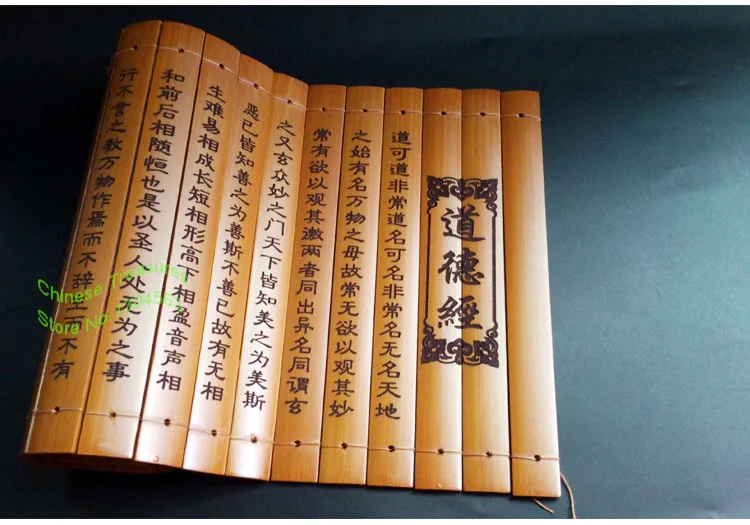 道德經
道可道非常道名可名非常名无名天地
之始有名万物之母故常无欲以观其妙
常有欲以观其徼两者同出异名同谓玄
之又玄众妙之门天下皆知美之为美斯
恶已皆知善之为善斯不善已故有无相
生难易相成长短相形高下相盈音声相
和前后相随恒也是以圣人处无为之事
行不言之教万物作焉而不辞生而不有
Chinese Treasures
Store No.